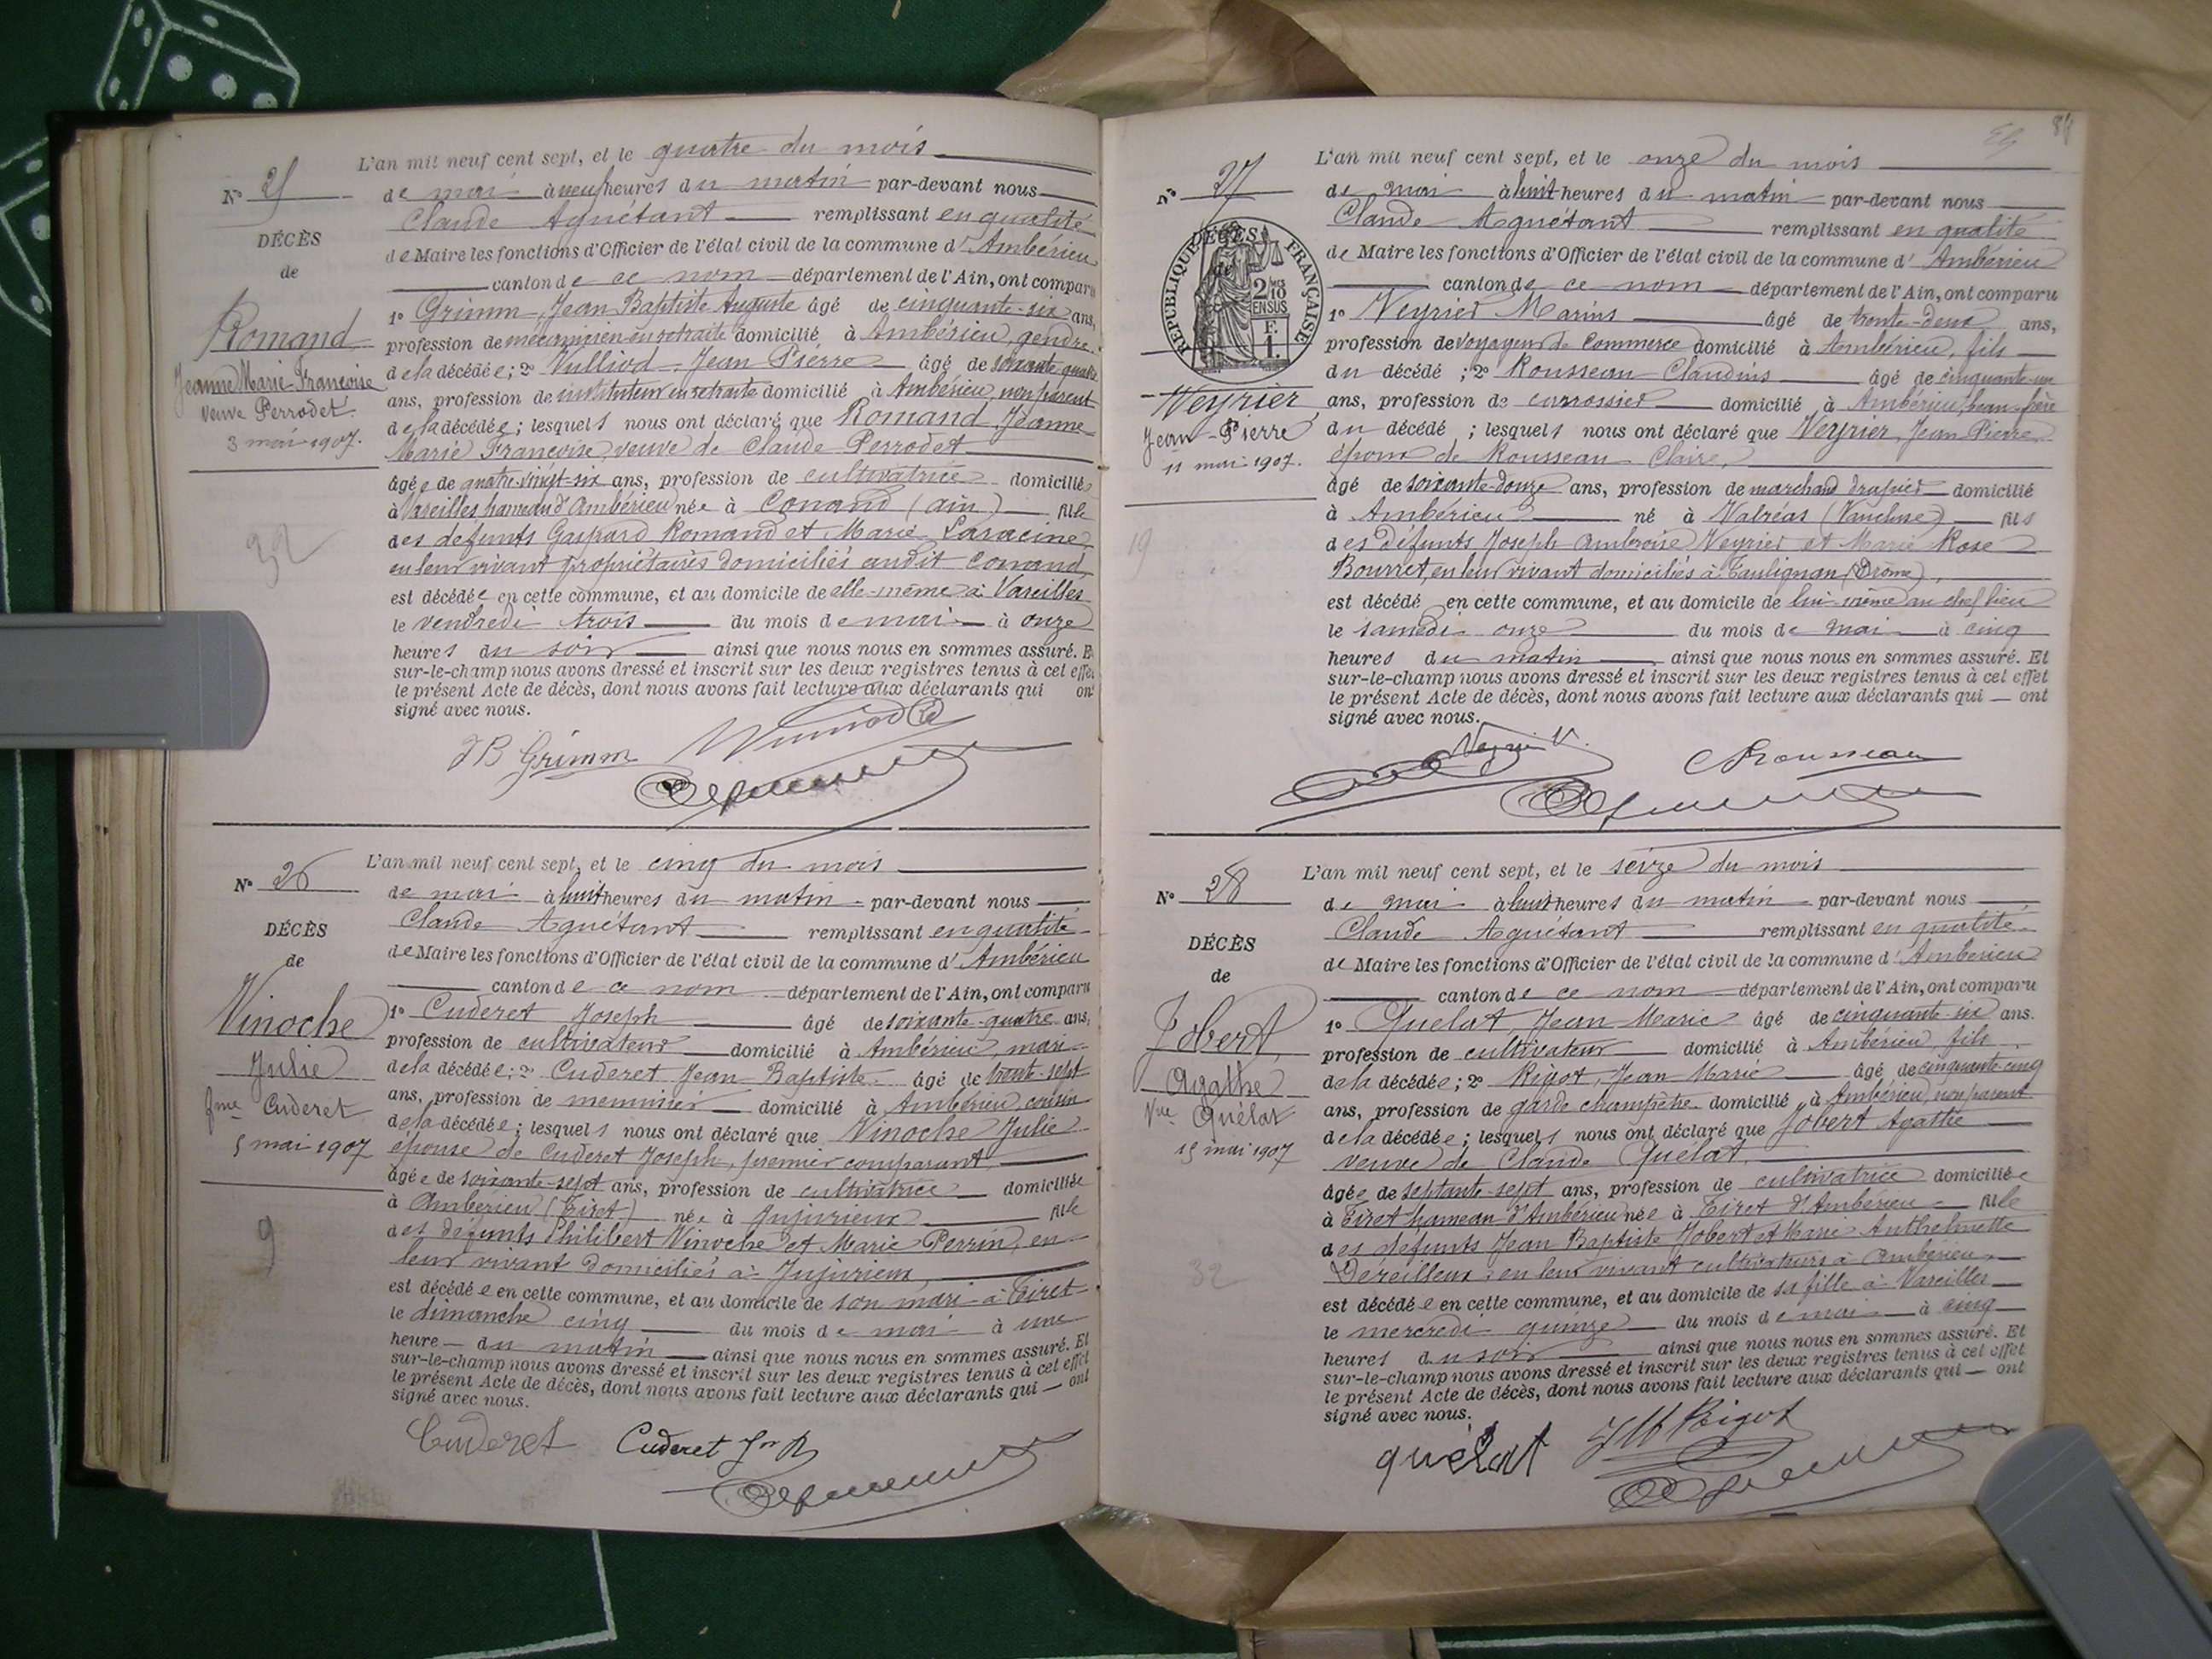 L'an mil neuf cent sept, et le quatre du mois
N° 25
de mai à neuf heures du matin par-devant nous
Claude Aguétant remplissant en qualité
DÉCÈS
de Maire les fonctions d'Officier de l'état civil de la commune d'Ambérieu
de
canton de ce nom département de l'Ain, ont comparu
1° Grimm, Jean Baptiste Auguste âgé de cinquante-six ans,
Romand
profession de mécanicien en retraite domicilié à Ambérieu, gendre
de la décédée; 2° Vulliod Jean Pierre âgé de soixante quatre
Jeanne Marie Françoise
ans, profession de instituteur en retraite domicilié à Ambérieu, non parent
veuve Perrodet
de la décédée; lesquels nous ont déclaré que Romand Jeanne
3 mai 1907.
Marie Françoise, veuve de Claude Perrodet
âgée de quatre-vingt-six ans, profession de cultivatrice domiciliée
à Vareilles hameau d'Ambérieu née à Conand (Ain) fille
des défunts Gaspard Romand et Marie Saracine,
32
en leur vivant propriétaires domiciliés audit Conand,
est décédée en cette commune, et au domicile de elle-même à Vareilles
le vendredi trois du mois de mai à onze
heures du soir ainsi que nous nous en sommes assuré. Et
sur-le-champ nous avons dressé et inscrit sur les deux registres tenus à cet effet
le présent Acte de décès, dont nous avons fait lecture aux déclarants qui ont
signé avec nous.
JB Grimm
L'an mil neuf cent sept, et le cinq du mois
N° 26
de mai à huit heures du matin par-devant nous
Claude Aguétant remplissant en qualité
DÉCÈS
de Maire les fonctions d'Officier de l'état civil de la commune d'Ambérieu
de
canton de ce nom département de l'Ain, ont comparu
Vinoche
1° Cuderet Joseph âgé de soixante-quatre ans,
profession de cultivateur domicilié à Ambérieu, mari
Julie
de la décédée; 2° Cuderet Jean Baptiste âgé de trente-sept
fme Cuderet
ans, profession de menuisier domicilié à Ambérieu, cousin
de la décédée; lesquels nous ont déclaré que Vinoche Julie
5 mai 1907
épouse de Cuderet Joseph, premier comparant
âgée de soixante-sept ans, profession de cultivatrice domiciliée
à Ambérieu (Tiret) née à Jujurieux fille
9
des défunts Philibert Vinoche et Marie Perrin, en
leur vivant domiciliés à Jujurieux,
est décédée en cette commune, et au domicile de son mari à Tiret
le dimanche cinq du mois de mai à une
heure du matin ainsi que nous nous en sommes assuré. Et
sur-le-champ nous avons dressé et inscrit sur les deux registres tenus à cet effet
le présent Acte de décès, dont nous avons fait lecture aux déclarants qui ont
signé avec nous.
Cuderet Cuderet Jn B
84
L'an mil neuf cent sept, et le onze du mois
N° 27
de mai à huit heures du matin par-devant nous
Claude Aguétant remplissant en qualité
DÉCÈS
de
RÉPUBLIQUE FRANÇAISE
de Maire les fonctions d'Officier de l'état civil de la commune d'Ambérieu
canton de ce nom département de l'Ain, ont comparu
1° Veyrier Marius âgé de trente-deux ans,
profession de voyageur de commerce domicilié à Ambérieu, fils
du décédé; 2° Rousseau Claudius âgé de cinquante-un
Veyrier
ans, profession de carrossier domicilié à Ambérieu, beau-frère
Jean-Pierre
du décédé; lesquels nous ont déclaré que Veyrier, Jean Pierre
11 mai 1907.
époux de Rousseau Claire,
âgé de soixante-douze ans, profession de marchand drapier domicilié
à Ambérieu né à Valréas (Vaucluse) fils
19
des défunts Joseph Ambroise Veyrier et Marie Rose
Bourret, en leur vivant domiciliés à Taulignan (Drôme),
est décédé en cette commune, et au domicile de lui-même au chef lieu
le samedi onze du mois de mai à cinq
heures du matin ainsi que nous nous en sommes assuré. Et
sur-le-champ nous avons dressé et inscrit sur les deux registres tenus à cet effet
le présent Acte de décès, dont nous avons fait lecture aux déclarants qui ont
signé avec nous.
C Rousseau
L'an mil neuf cent sept, et le seize du mois
N° 28
de mai à huit heures du matin par-devant nous
Claude Aguétant remplissant en qualité
DÉCÈS
de Maire les fonctions d'Officier de l'état civil de la commune d'Ambérieu
de
canton de ce nom département de l'Ain, ont comparu
Jobert
1° Quélat, Jean Marie âgé de cinquante six ans.
profession de cultivateur domicilié à Ambérieu, fils
Agathe
de la décédée; 2° Rigot, Jean Marie âgé de cinquante cinq
Vve Quélat
ans, profession de garde champêtre domicilié à Ambérieu, non parent
de la décédée; lesquels nous ont déclaré que Jobert Agathe
15 mai 1907
veuve de Claude Quélat,
âgée de septante-sept ans, profession de cultivatrice domiciliée
à Tiret hameau d'Ambérieu née à Tiret d'Ambérieu fille
des défunts Jean Baptiste Jobert et Marie Anthelmette
32
en leur vivant cultivateurs à Ambérieu,
est décédée en cette commune, et au domicile de sa fille à Vareilles
le mercredi quinze du mois de mai à cinq
heures du soir ainsi que nous nous en sommes assuré. Et
sur-le-champ nous avons dressé et inscrit sur les deux registres tenus à cet effet
le présent Acte de décès, dont nous avons fait lecture aux déclarants qui ont
signé avec nous.
quélat JM Rigot